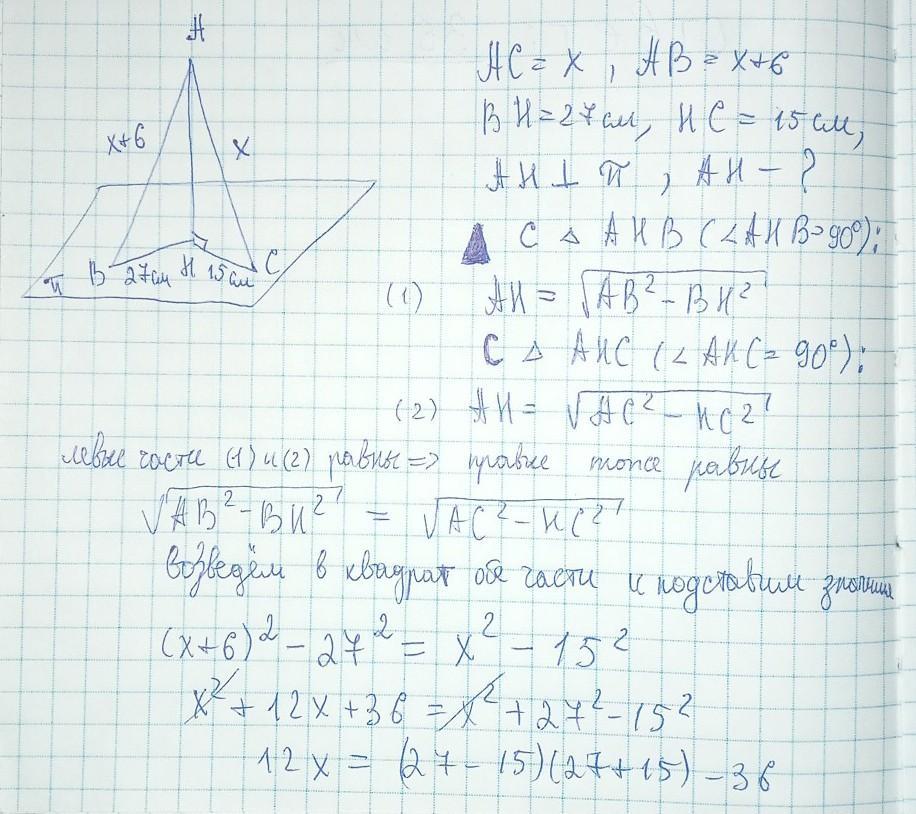 A
x+6
x
B 27см H 15см C
π
AC = x , AB = x+6
BH = 27 см, HC = 15 см,
AH ⊥ π , AH - ?
С △ AHB (∠AHB = 90°):
(1) AH = √AB² - BH²
С △ AHC (∠AHC = 90°):
(2) AH = √AC² - HC²
левые части (1) и (2) равны => правые тоже равны
√AB² - BH² = √AC² - HC²
возведём в квадрат обе части и подставим
(x+6)² - 27² = x² - 15²
x² + 12x + 36 = x² + 27² - 15²
12x = (27 - 15)(27 + 15) - 36